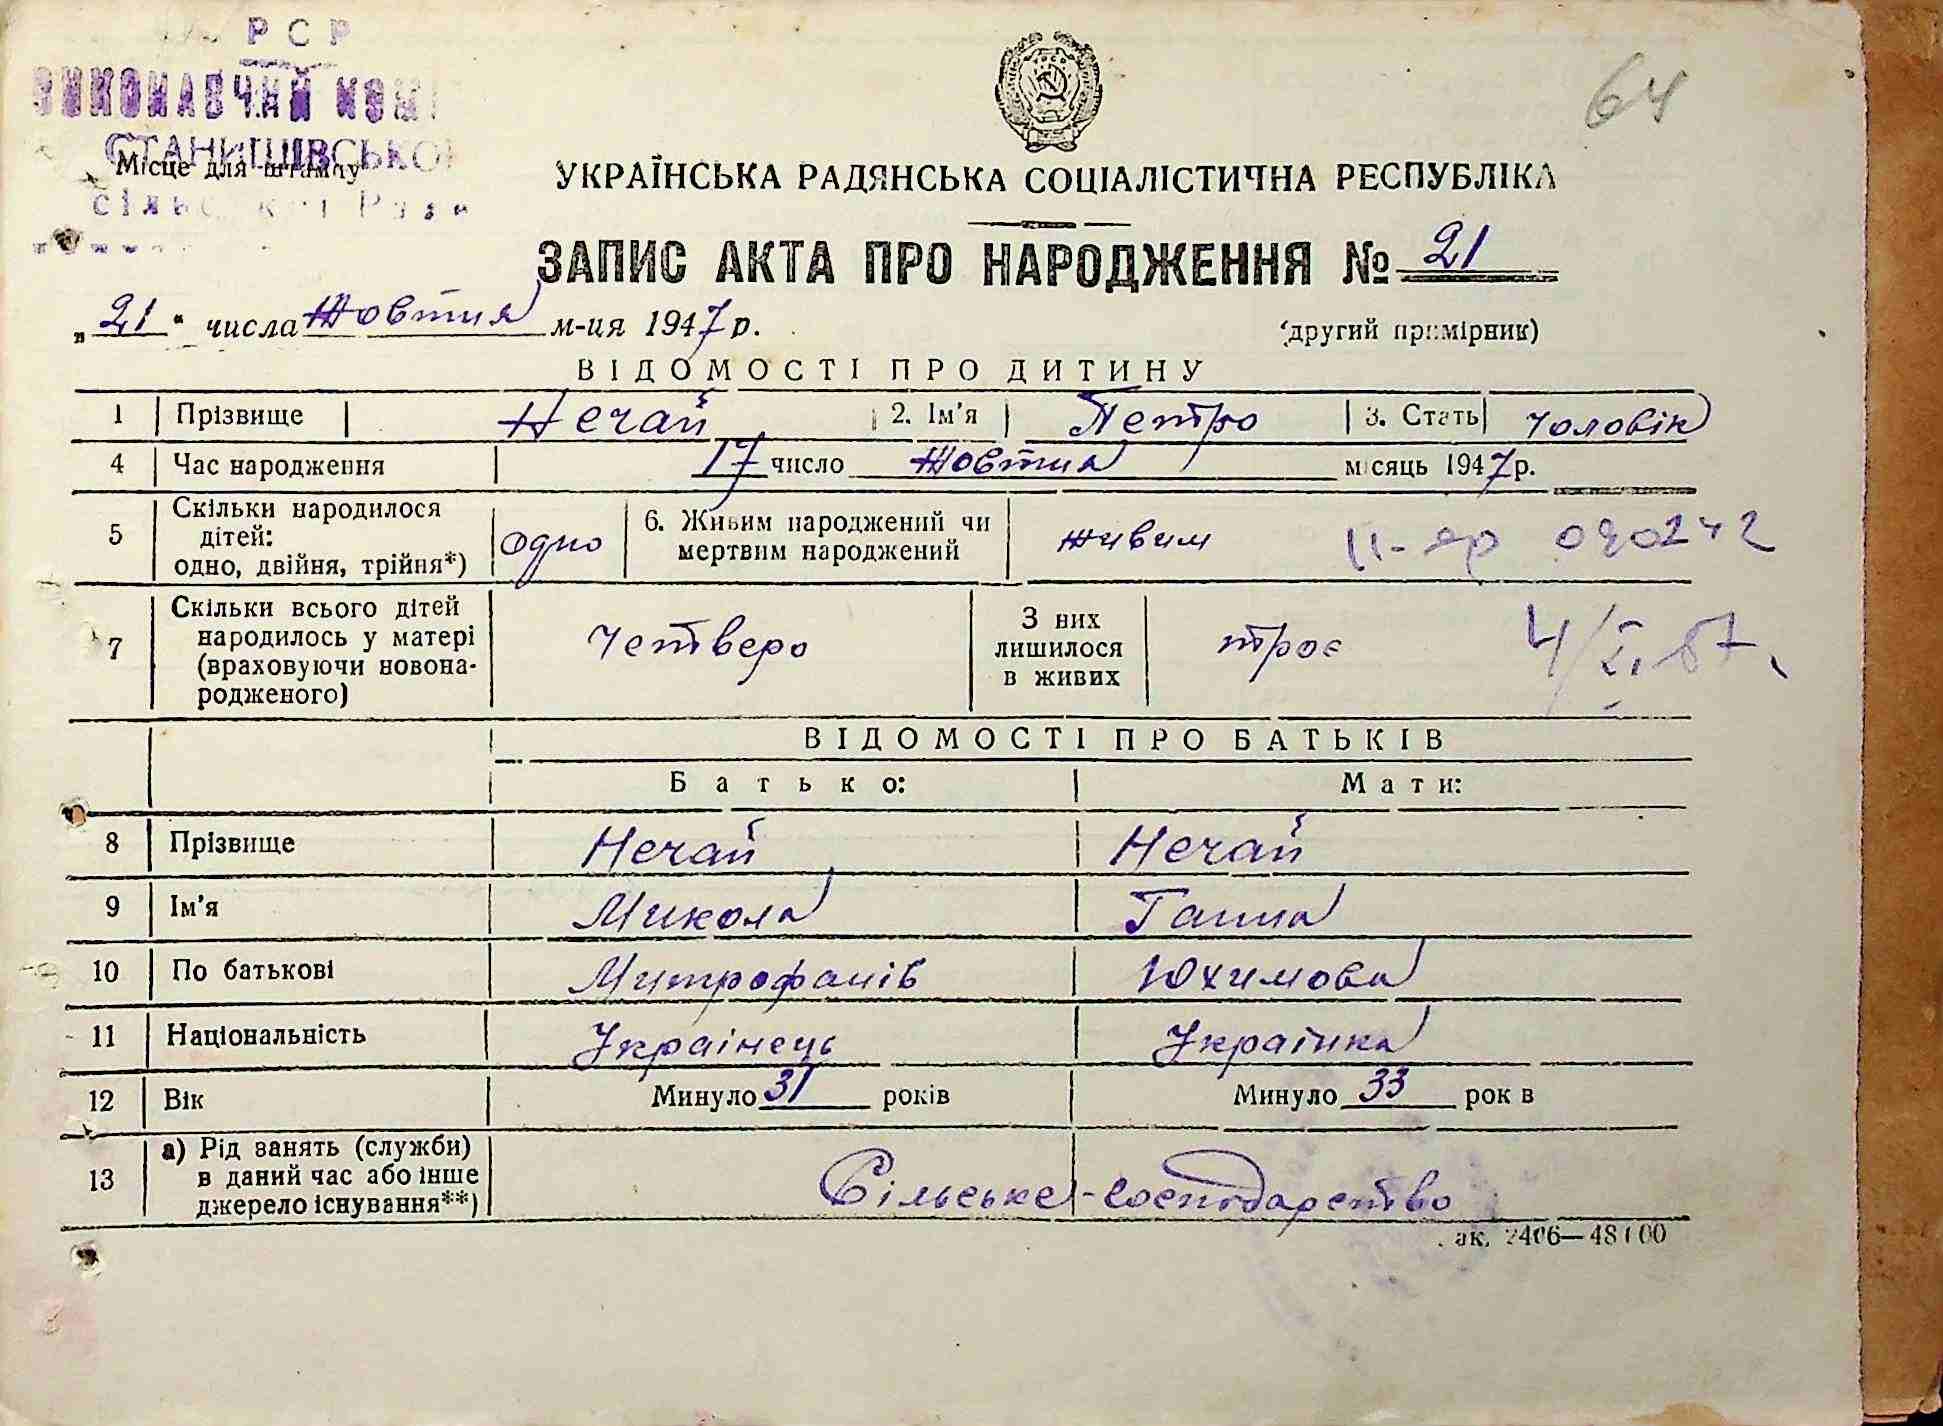 РСР
ВИКОНАВЧИЙ КОМІ
СТАНИШІВСЬКОЇ
Місце для штампу
сільської Ради
64
УКРАЇНСЬКА РАДЯНСЬКА СОЦІАЛІСТИЧНА РЕСПУБЛІКА
ЗАПИС АКТА ПРО НАРОДЖЕННЯ № 21
„21“ числа Жовтня м-ця 1947 р.
(другий примірник)
ВІДОМОСТІ ПРО ДИТИНУ
1 Прізвище Нечай 2. Ім'я Петро 3. Стать чоловік
4 Час народження 17 число Жовтня місяць 1947 р.
5 Скільки народилося дітей: одно, двійня, трійня*) одно 6. Живим народжений чи мертвим народжений живим II-яр 090242
7 Скільки всього дітей народилось у матері (враховуючи новонародженого) четверо З них лишилося в живих троє 4/XI 57
ВІДОМОСТІ ПРО БАТЬКІВ
Батько: Мати:
8 Прізвище Нечай Нечай
9 Ім'я Микола Ганна
10 По батькові Митрофанів Юхимова
11 Національність Українець Українка
12 Вік Минуло 31 років Минуло 33 років
13 а) Рід занять (служби) в даний час або інше джерело існування**) Сільське-господарство
Зак. 2406—48100